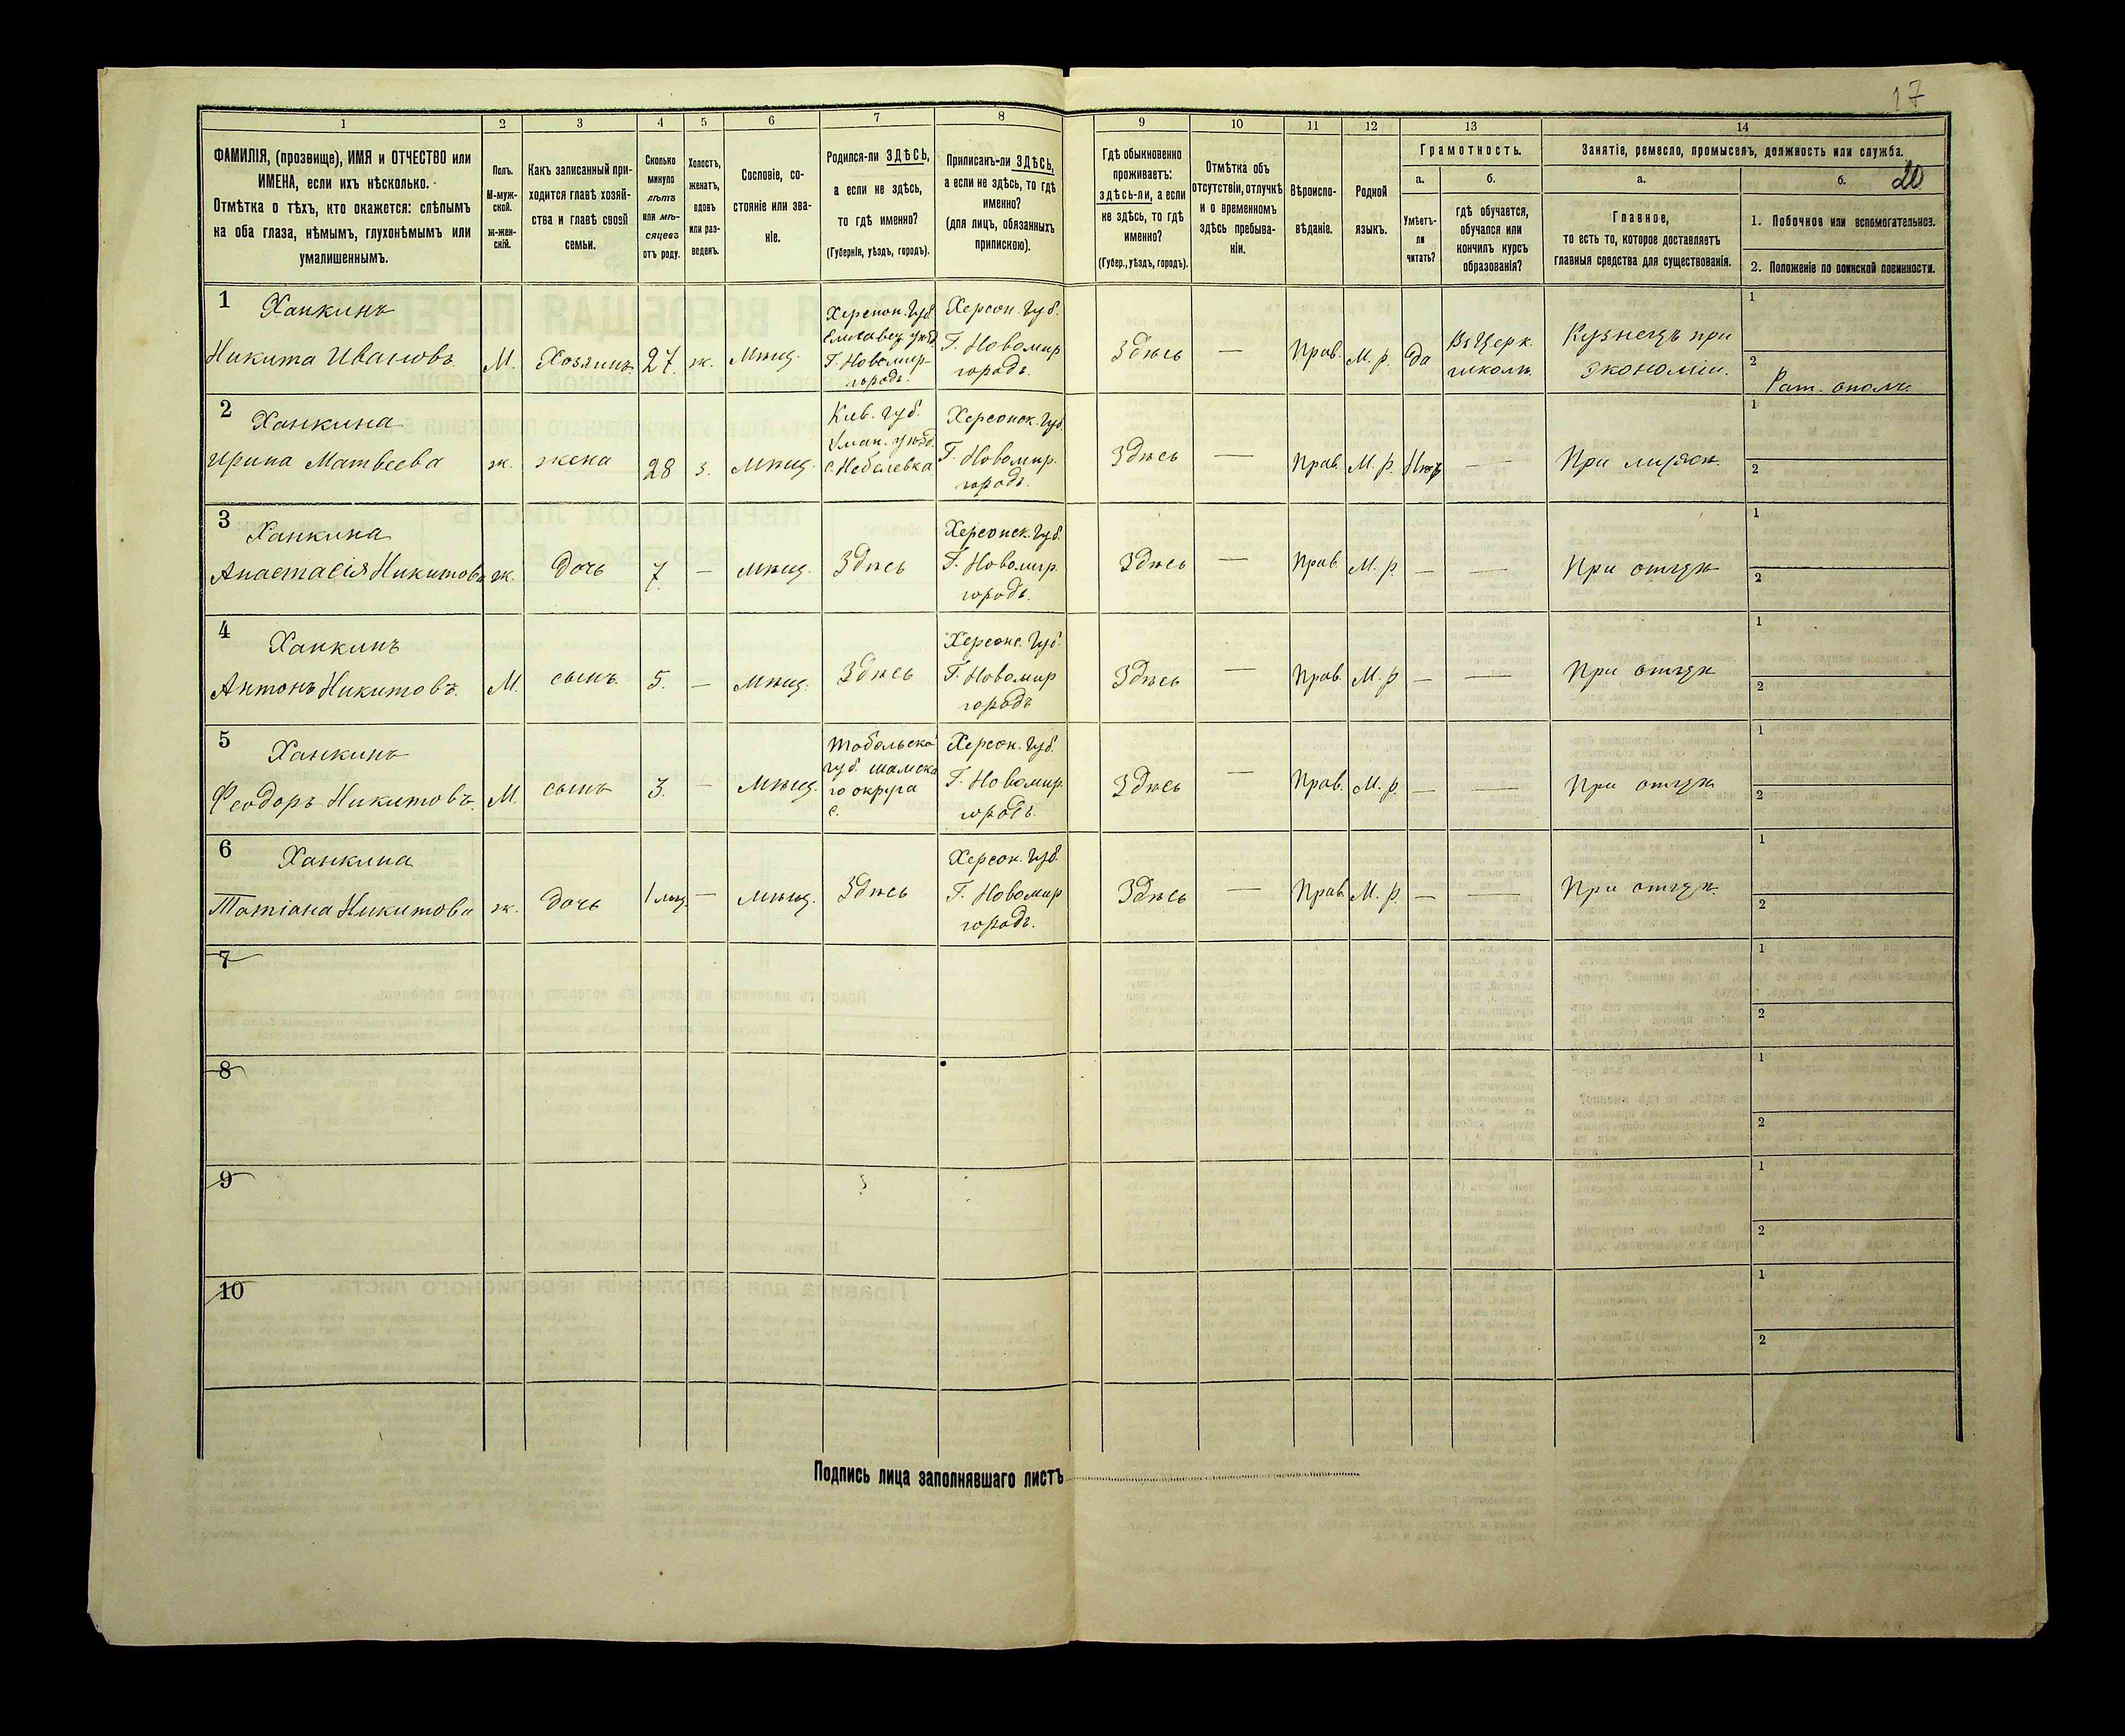 17
1 2 3 4 5 6 7 8 9 10 11 12 13 14
ФАМИЛІЯ, (прозвище), ИМЯ и ОТЧЕСТВО или
ИМЕНА, если ихъ нѣсколько.
Отмѣтка о тѣхъ, кто окажется: слѣпымъ
на оба глаза, нѣмымъ, глухонѣмымъ или
умалишеннымъ.
Полъ.
М-муж-
ской.
ж-жен-
скій.
Какъ записанный при-
ходится главѣ хозяй-
ства и главѣ своей
семьи.
Сколько
минуло
лѣтъ
или мѣ-
сяцевъ
отъ роду.
Холостъ,
женатъ,
вдовъ
или раз-
веденъ.
Сословіе, со-
стояніе или зва-
ніе.
Родился-ли ЗДѢСЬ,
а если не здѣсь,
то гдѣ именно?
(Губернія, уѣздъ, городъ).
Приписанъ-ли ЗДѢСЬ,
а если не здѣсь, то гдѣ
именно?
(для лицъ, обязанныхъ
припискою).
Гдѣ обыкновенно
проживаетъ:
здѣсь-ли, а если
не здѣсь, то гдѣ
именно?
(Губер., уѣздъ, городъ).
Отмѣтка объ
отсутствіи, отлучкѣ
и о временномъ
здѣсь пребыва-
ніи.
Вѣроиспо-
вѣданіе.
Родной
языкъ.
Грамотность.
а.
Умѣетъ-
ли
читать?
б.
гдѣ обучается,
обучался или
кончилъ курсъ
образованія?
Занятіе, ремесло, промыселъ, должность или служба.
а.
Главное,
то есть то, которое доставляетъ
главныя средства для существованія.
б.
20
1. Побочное или вспомогательное.
2. Положеніе по воинской повинности.
1
Ханкинъ
Никита Ивановъ.
М.
Хозяинъ
27.
ж.
Мѣщ.
Херсон. Губ.
Елисавет. уѣзд.
Г. Новомир-
городъ.
Херсон. Губ.
Г. Новомир
городъ.
Здѣсь
—
Прав.
М. р.
да
Въ Церк.
школѣ.
Кузнецъ при
Экономіи.
1
2
Рат. ополч.
2
Ханкина
Ирина Матвеева
ж.
жена
28
з.
Мѣщ.
Кіев. Губ.
Уман. уѣзд.
с. Небелевка
Херсонск. Губ.
Г. Новомир.
городъ.
Здѣсь
—
Прав.
М. р.
Нѣтъ
— —
При мужѣ.
1
2
3
Ханкина
Анастасія Никитова
ж.
дочь
7.
—
мѣщ.
Здѣсь
Херсонск. Губ.
Г. Новомир.
городъ.
Здѣсь
—
Прав.
М. р.
—
—
При отцѣ
1
2
4
Ханкинъ
Антонъ Никитовъ.
М.
сынъ.
5.
—
мѣщ.
Здѣсь
Херсонс. Губ.
Г. Новомир
городъ
Здѣсь
—
Прав.
М. р
—
—
При отцѣ
1
2
5
Ханкинъ
Феодоръ Никитовъ.
М.
сынъ
3.
—
мѣщ.
Тобольской
губ.
го округа
с.
Херсон. Губ.
Г. Новомир.
городъ.
Здѣсь
—
Прав.
М. р.
—
—
При отцѣ
1
2
6
Ханкина
Татіана Никитова
ж.
дочь
1 мѣс
—
мѣщ.
Здѣсь
Херсон. Губ.
Г. Новомир
городъ.
Здѣсь
—
Прав.
М. р.
—
—
При отцѣ
1
2
7
1
2
8
1
2
9
1
2
10
1
2
Подпись лица заполнявшаго листъ